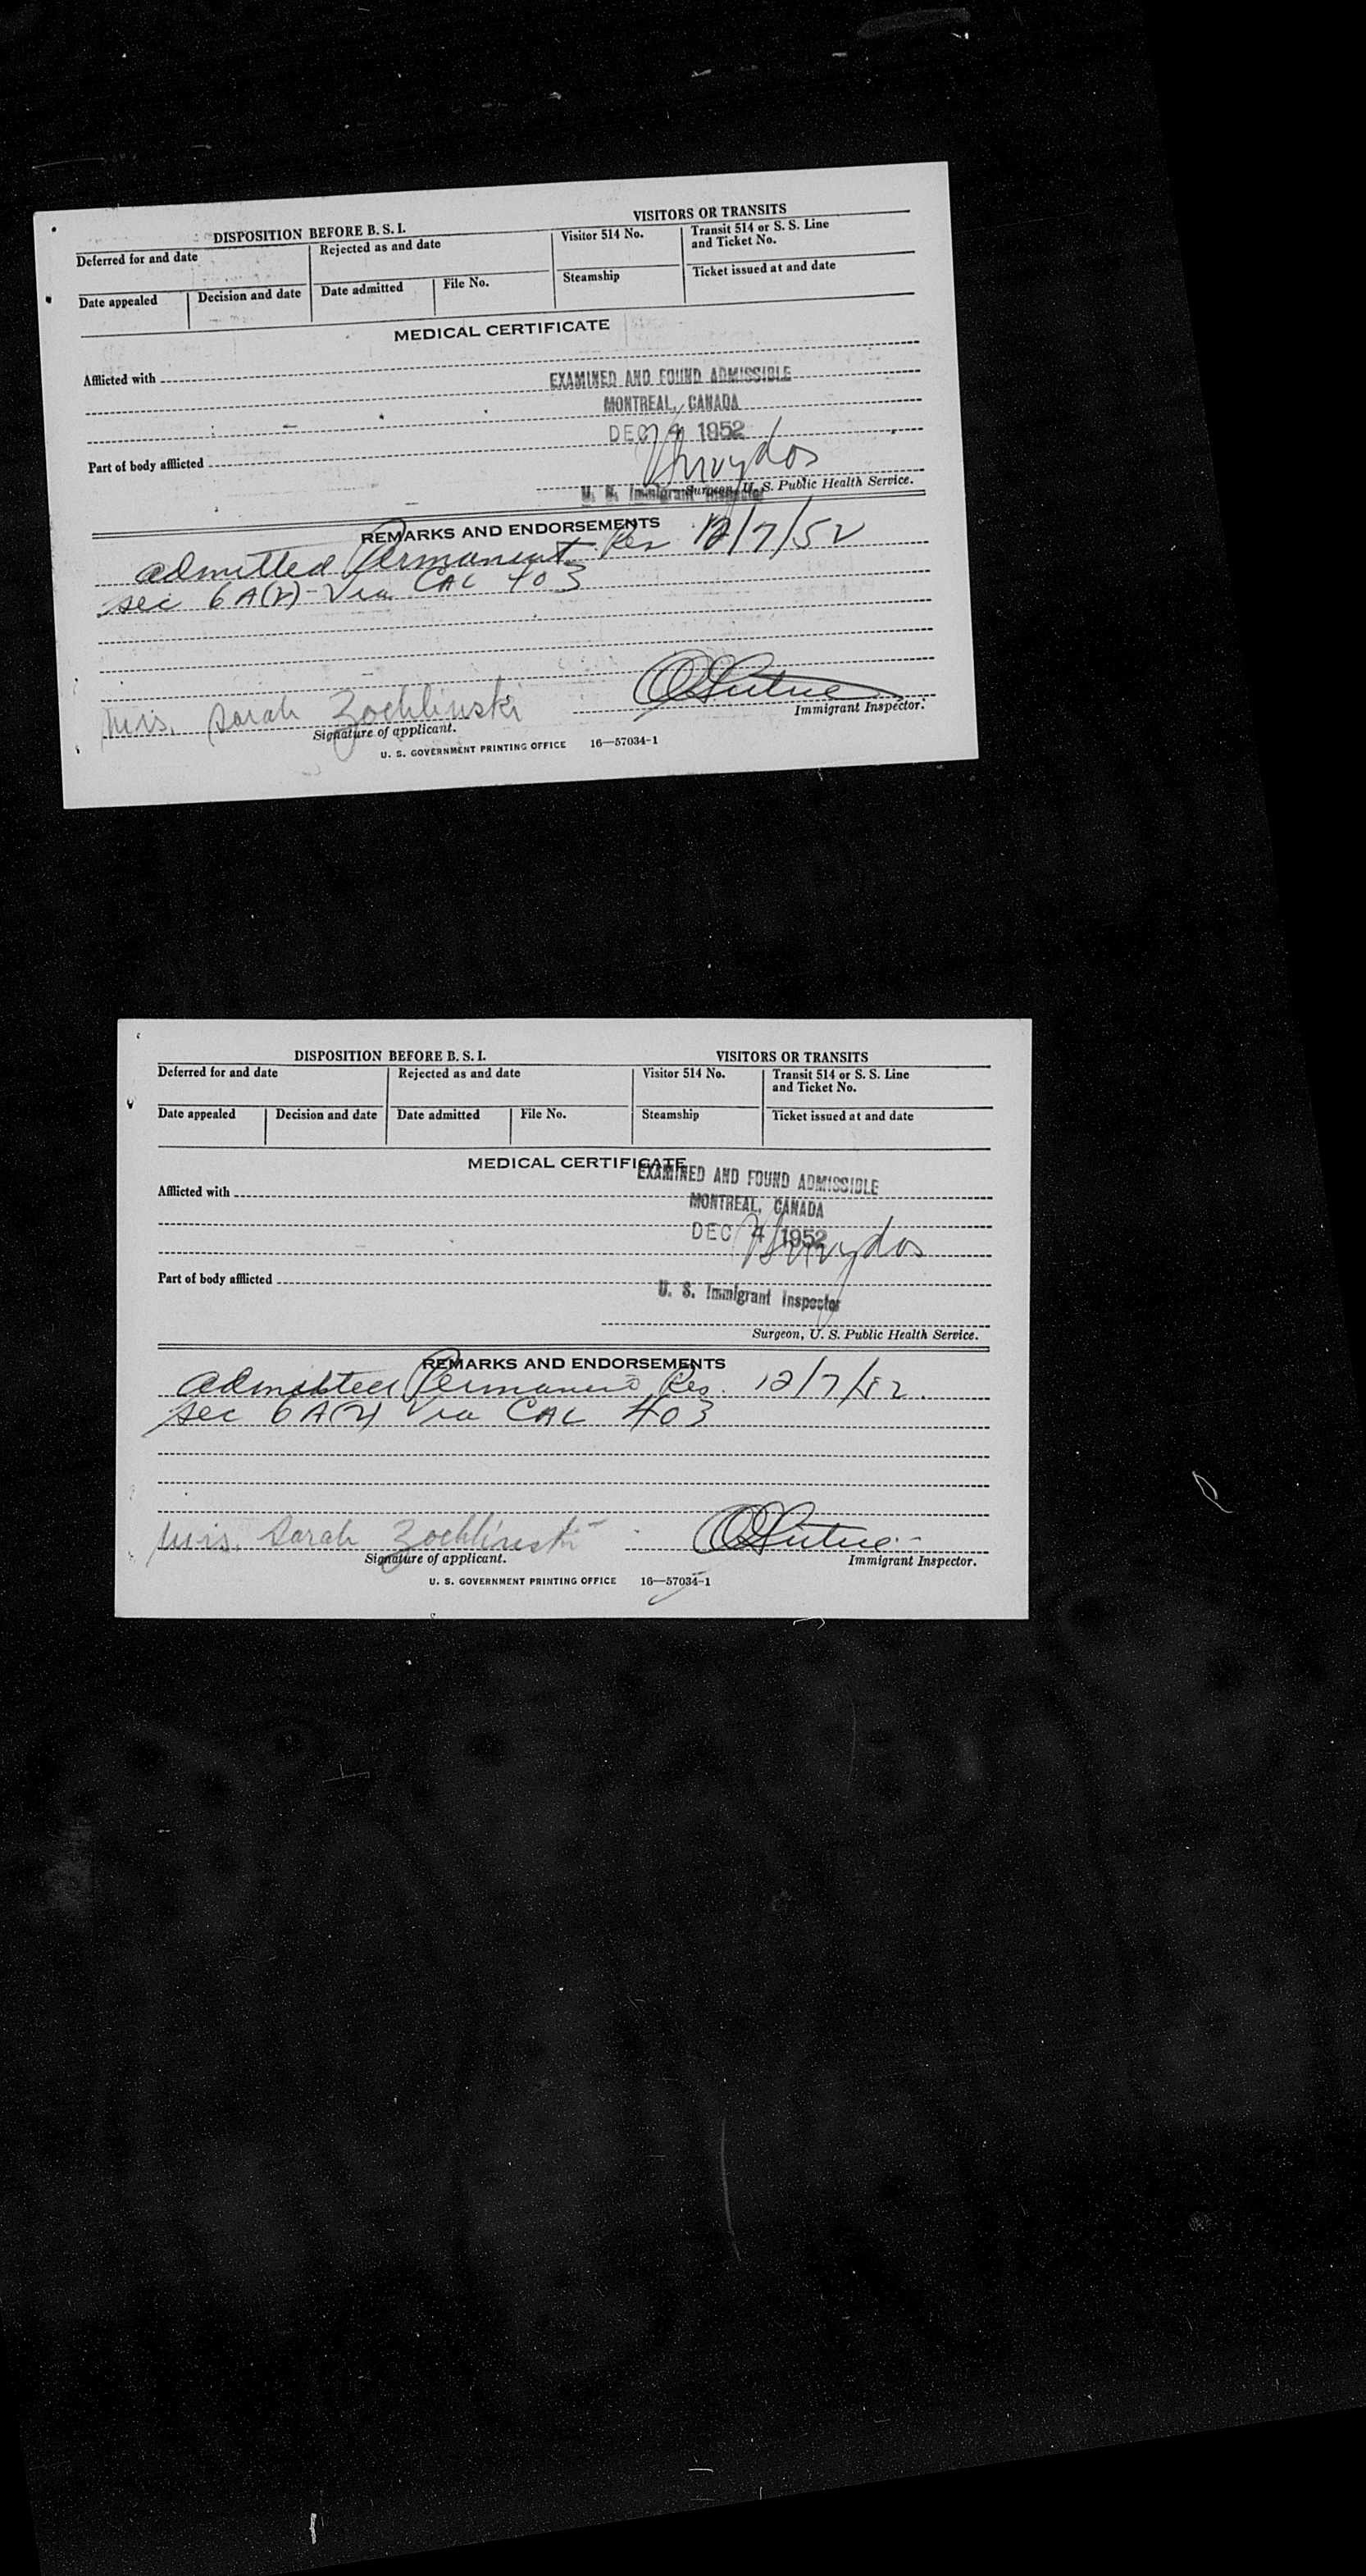 DISPOSITION BEFORE B. S. I.
VISITORS OR TRANSITS
Deferred for and date
Rejected as and date
Visitor 514 No.
Transit 514 or S. S. Line
and Ticket No.
Date appealed
Decision and date
Date admitted
File No.
Steamship
Ticket issued at and date
MEDICAL CERTIFICATE
Afflicted with
EXAMINED AND FOUND ADMISSIBLE
MONTREAL, CANADA
DEC 4 1952
Part of body afflicted
U. S. Immigrant Inspector
Surgeon, U. S. Public Health Service.
REMARKS AND ENDORSEMENTS
admitted Permanent Res 12/7/52
sec 6A(2) - Via CAL 403
Mrs. Sarah Zochlinski
Signature of applicant.
Immigrant Inspector.
U. S. GOVERNMENT PRINTING OFFICE 16—57034-1
DISPOSITION BEFORE B. S. I.
VISITORS OR TRANSITS
Deferred for and date
Rejected as and date
Visitor 514 No.
Transit 514 or S. S. Line
and Ticket No.
Date appealed
Decision and date
Date admitted
File No.
Steamship
Ticket issued at and date
MEDICAL CERTIFICATE
EXAMINED AND FOUND ADMISSIBLE
Afflicted with
MONTREAL, CANADA
DEC 4 1952
Part of body afflicted
U. S. Immigrant Inspector
Surgeon, U. S. Public Health Service.
REMARKS AND ENDORSEMENTS
admitted Permanent Res. 12/7/52.
sec 6A(2) Via CAL 403
Mrs. Sarah Zochlinski
Signature of applicant.
Immigrant Inspector.
U. S. GOVERNMENT PRINTING OFFICE 16—57034-1